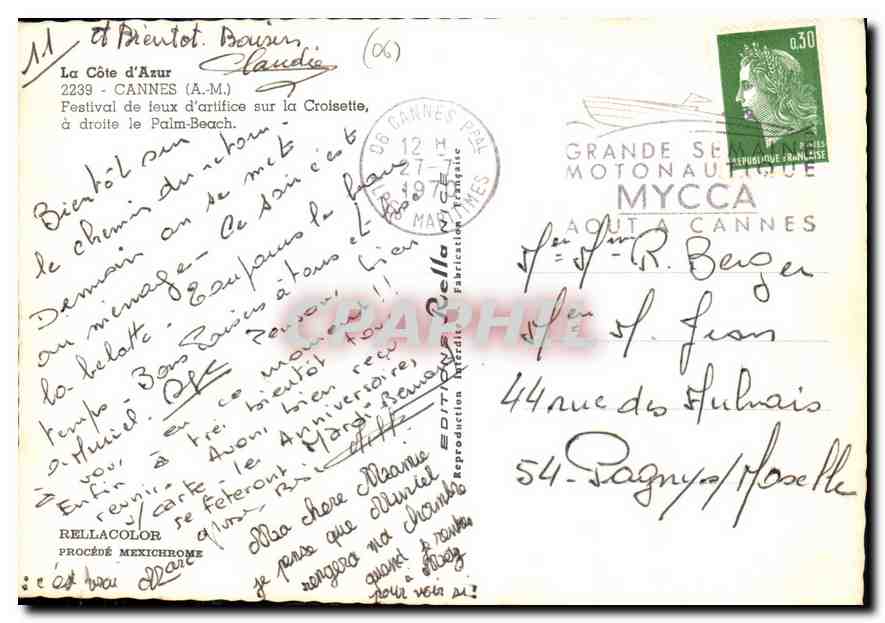 11
et Bientot. Baisers
Claudie
(06)
La Côte d'Azur
2239 - CANNES (A.-M.)
Festival de jeux d'artifice sur la Croisette,
à droite le Palm-Beach.
Bientôt sur
le chemin du retour.
Demain on se met
au ménage. Ce soir c'est
la belotte. Toujours le beau
temps. Bons Baisers à tous et
à Muriel.
bien
à vous, en ce moment!!
Enfin à très bientôt tous
réunis. Avons bien reçu
s/carte le Anniversaires,
se fêteront Mardi. Bernard
Ma chère Mamie
je pense que Muriel
rangera ma chambre
quand je rentre
à Metz
pour voir si!
: c'est vrai Marc
RELLACOLOR
PROCÉDÉ MEXICHROME
EDITIONS Rella NICE
Reproduction Interdite Fabrication Française
06 CANNES PPAL
12 H
27-7
197
ALPES MARITIMES
GRANDE SEMAINE
MOTONAUTIQUE
MYCCA
AOUT A CANNES
0,30
POSTES
REPUBLIQUE FRANÇAISE
Mr Mme R. Berger
Mr M. Jean
44 rue des Aulnais
54 - Pagny s/Moselle
CPAPHIL